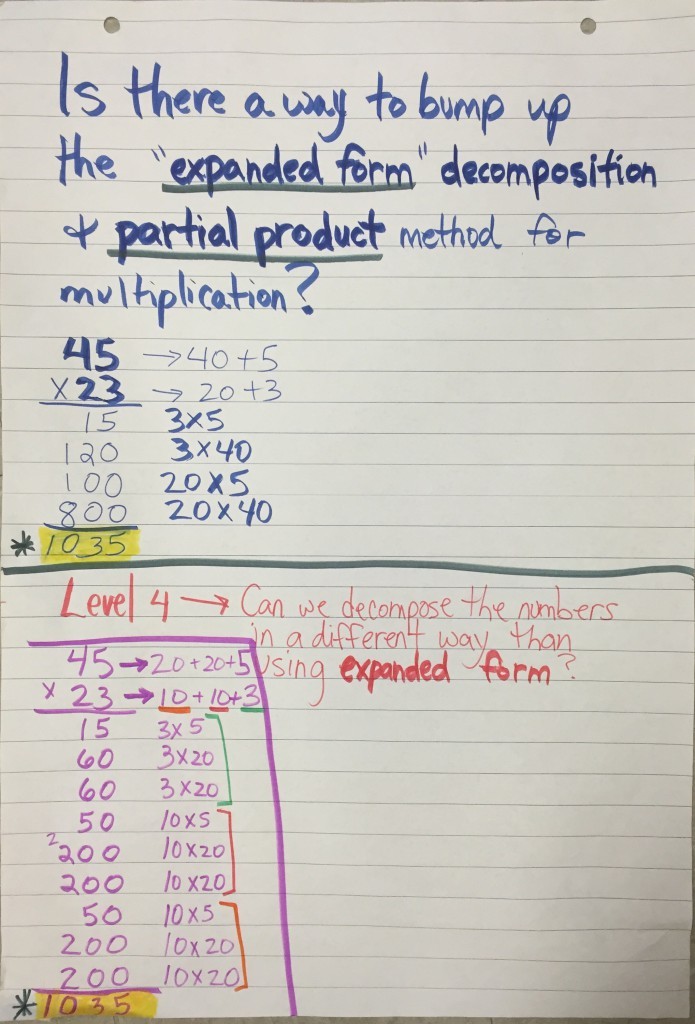 Is there a way to bump up
the "expanded form" decomposition
+ partial product method for
multiplication?
45 → 40 + 5
x 23 → 20 + 3
15 3x5
120 3x40
100 20x5
800 20x40
* 1035
Level 4 → Can we decompose the numbers
in a different way than
using expanded form?
45 → 20 + 20 + 5
x 23 → 10 + 10 + 3
15 3x5
60 3x20
60 3x20
50 10x5
2
200 10x20
200 10x20
50 10x5
200 10x20
200 10x20
* 1035